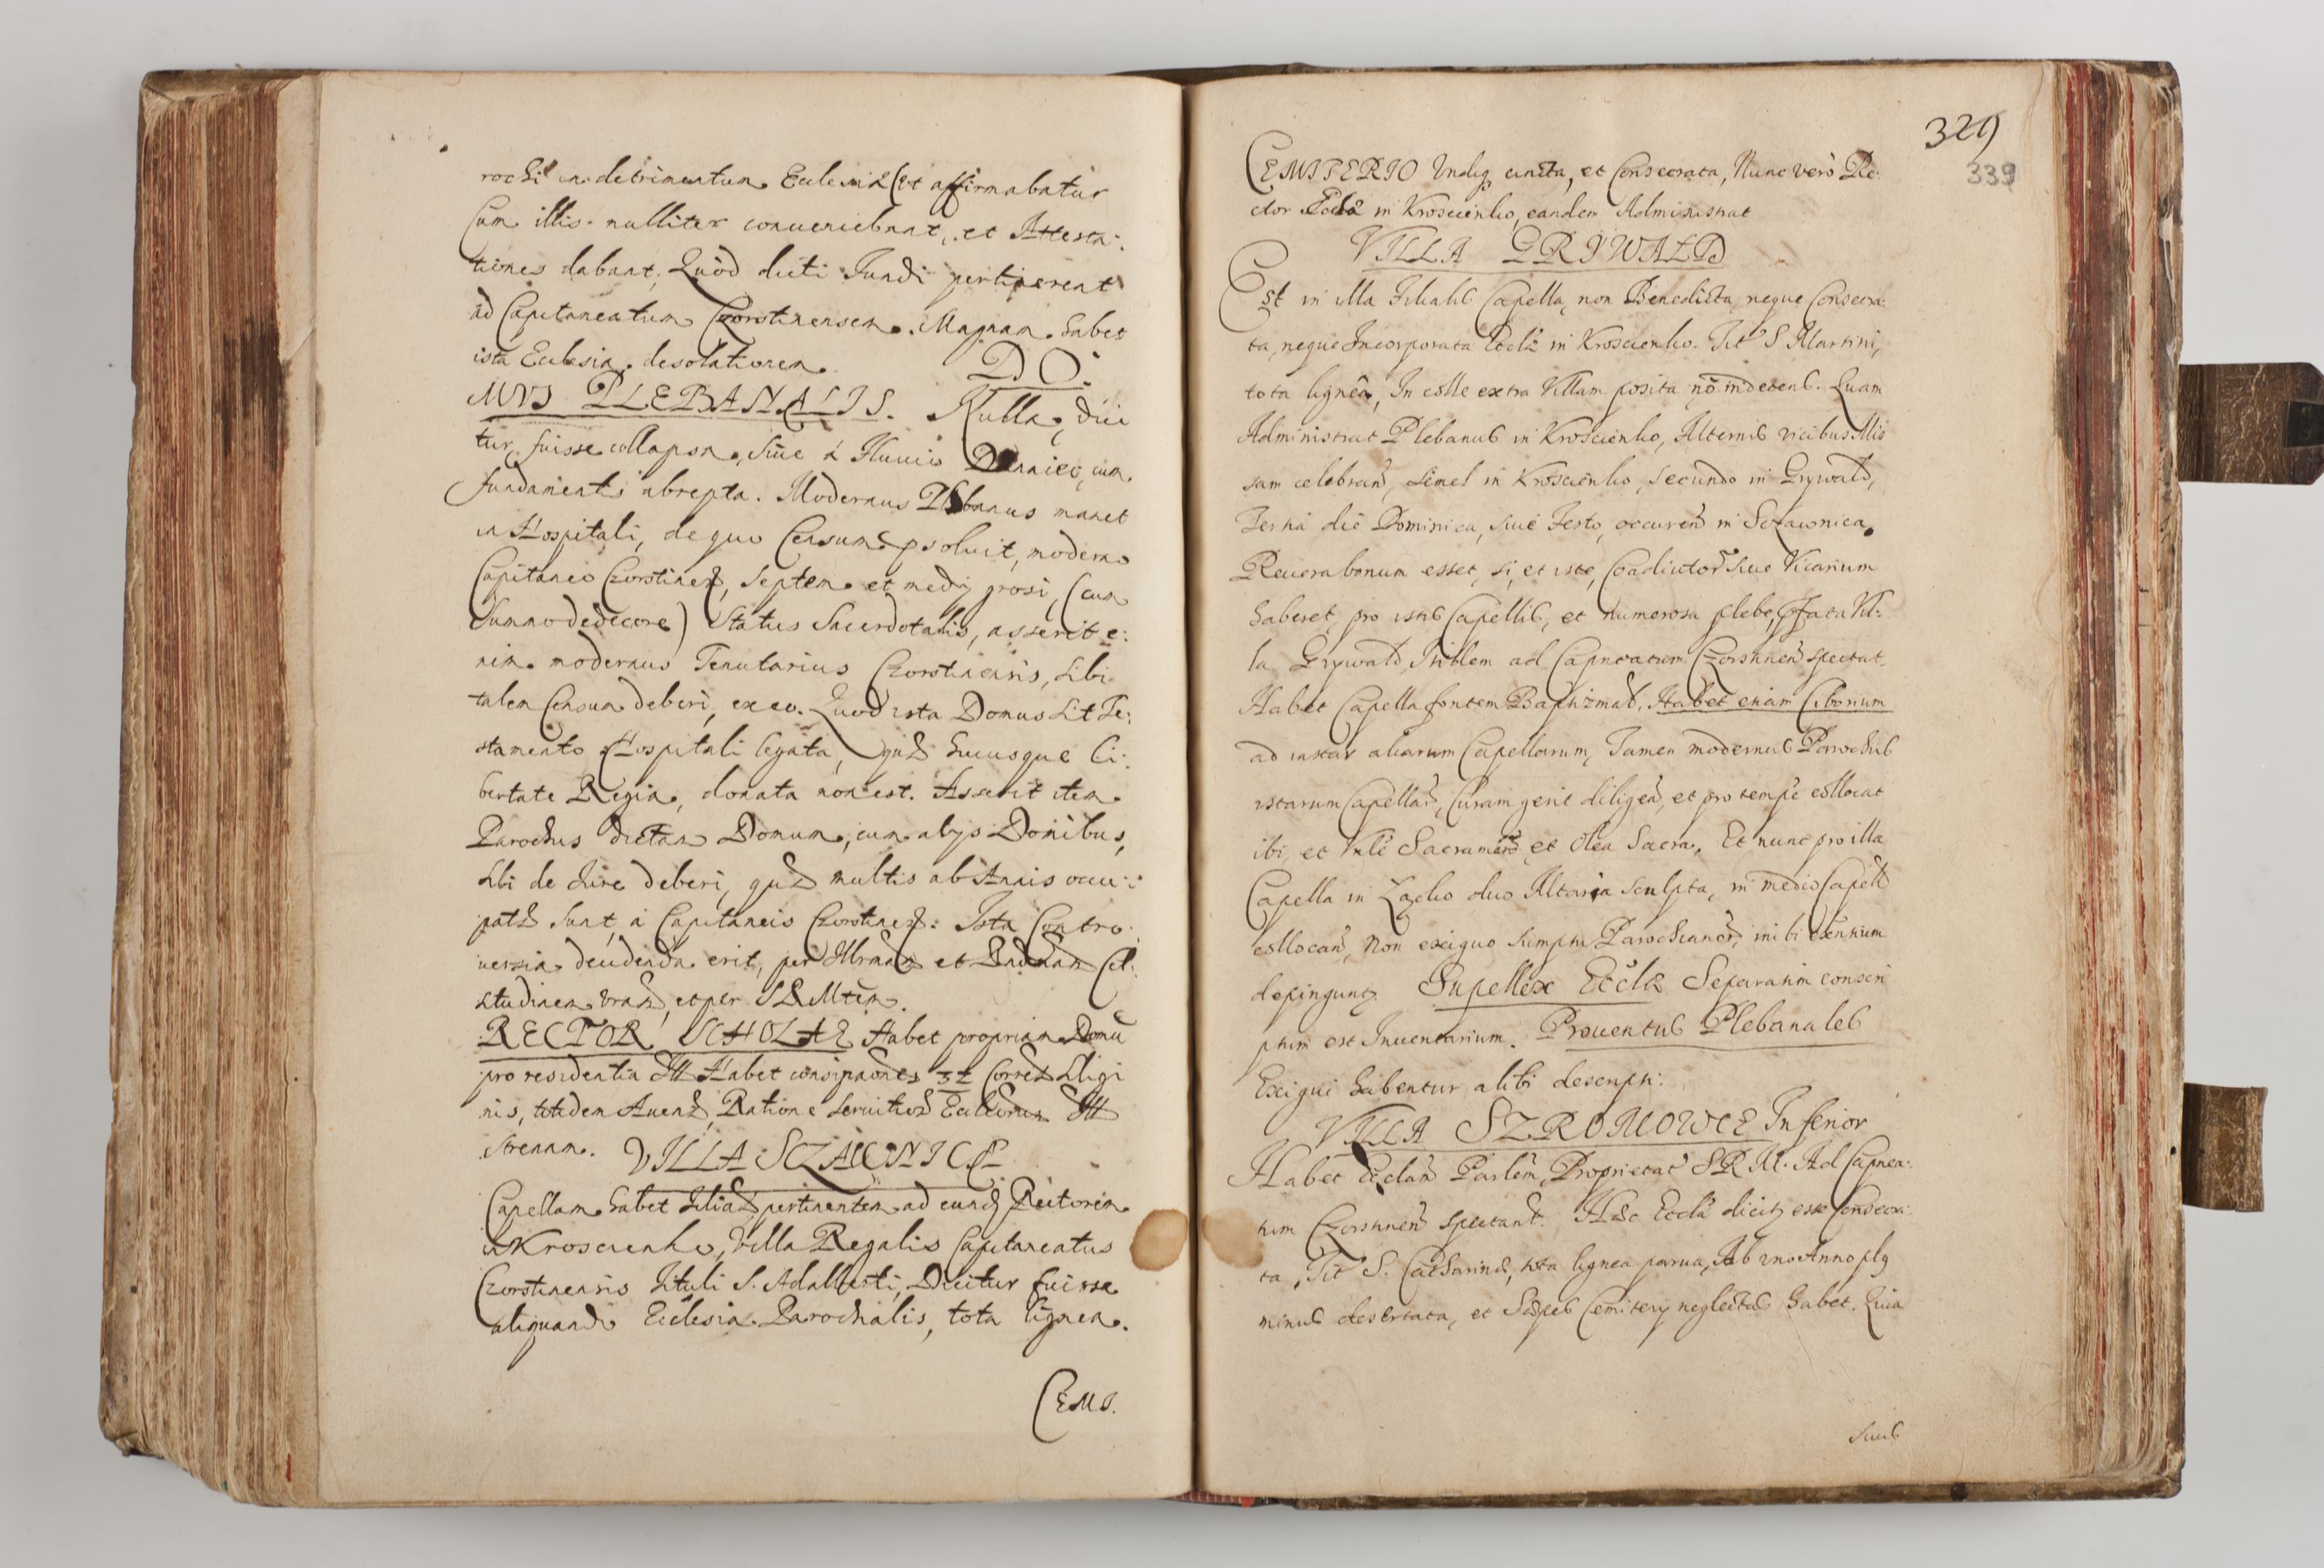 rochi in detrimentum Ecclesiæ (ut affirmabatur
Cum illis nulliter conveniebant, et Attesta:
tiones dabant, Quòd dicti Fundi pertinerent
ad Capitaneatum Czorstinensem. Magnam habet
ista Ecclesia desolationem. DO:
MVS PLEBANALIS. Nulla, dici
tur fuisse collapsa, siue á Fluuio Dunaiec, cum
fundamentis abrepta. Modernus Plebanus manet
in Hospitali, de quo Censum psoluit, moderno
Capitaneo Czorstinen, septem et medij grosi, (cum
summo dedecore) Status Sacerdotalis, asserit e:
nim modernus Tenutarius Czorstinensis, sibi
talem Censum deberi, ex eo. Quod ista Domus sit Te:
stamento Hospitali legata, quæ hucusque li:
bertate Regia, donata non est. Asserit item
Parochus dictam Domum, cum alijs Domibus,
sibi de Iure deberi, quæ multis ab Annis occu:
patæ sunt, á Capitaneis Czorstinen: Ista Contro:
uersia decidenda erit, per Illrmam et Rndmam Cel:
situdinem vram, et per SRMtem.
RECTOR SCHOLAE Habet propriam Domu
pro residentia Itt Habet consignaones 32 Corres Sligi
nis, totidem Auenæ, Ratione seruitior Eccleorum Itt
strenam. VILLA SCZAWNICA
Capellam habet filiale pertinentem ad eundq Rectorem
in Kroscienko, Villa Regalis Capitaneatus
Czorstinensis Tituli S. Adalberti, Dicitur fuisse
aliquando Ecclesia Parochialis, tota lignea.
CEMI.
329
339
CEMITERIO Undiq cincta, et Consecrata, Nunc verò Re:
ctor Eccla in Kroscienko, eandem Administrat
VILLA GRIWALD
Est in illa Filialis Capella, non Benedicta, neque Consecra:
ta, neque Incorporata Eccla in Kroscienko. Tit S Martini,
tota lignea, In colle extra Villam posita nō indecens. Quam
Administrat Plebanus in Kroscienko, Alternis vicibus Mis
sam celebran, semel in Kroscienko, secundo in Grywald,
Terna die Dominica, siue Festo, occuren in Sczawnica.
Reuera bonum esset, si, et iste, Coadiutor siue Vicarium
haberet, pro istis Capellis, et numerosa plebe, pfata Vil:
la Grywald, Itidem ad Capneatum Czorstinen spectat,
Habet Capella fontem Baptizmat. Habet etiam Ciborium
ad instar aliarum Capellarum, Tamen modernus Parochus
istarum Capellar, Curam gerit diligen, et pro tempe collocat
ibi, et Vnle Sacramen et Olea Sacra. Et nunc pro illa
Capella in Łącko duo Altaria sculpta, in medio Capell
collocan, Non exiguo sumptu Parochianor, inibi existentium
depinguntq. Supellex Eccla Separatim conscri
ptum est Inuentarium. Prouentus Plebanales
Exigui habentur alibi descripti:
VILLA SZROMOWCE Inferior
Habet Ecclam Parlem, Proprietat SRM. Ad Capnea:
tum Czorstinen spectant. Hæc Eccla dicitq esse Consecra:
ta, Tit S. Catharinæ, tota lignea parua, Ab vno Anno plq
minus desertata, et Sæpes Cemiterij neglectas habet. Quia
suus